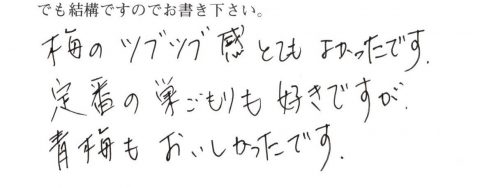 でも結構ですのでお書き下さい。
梅のツブツブ感とてもよかったです.
定番の巣ごもりも好きですが.
青梅もおいしかったです.